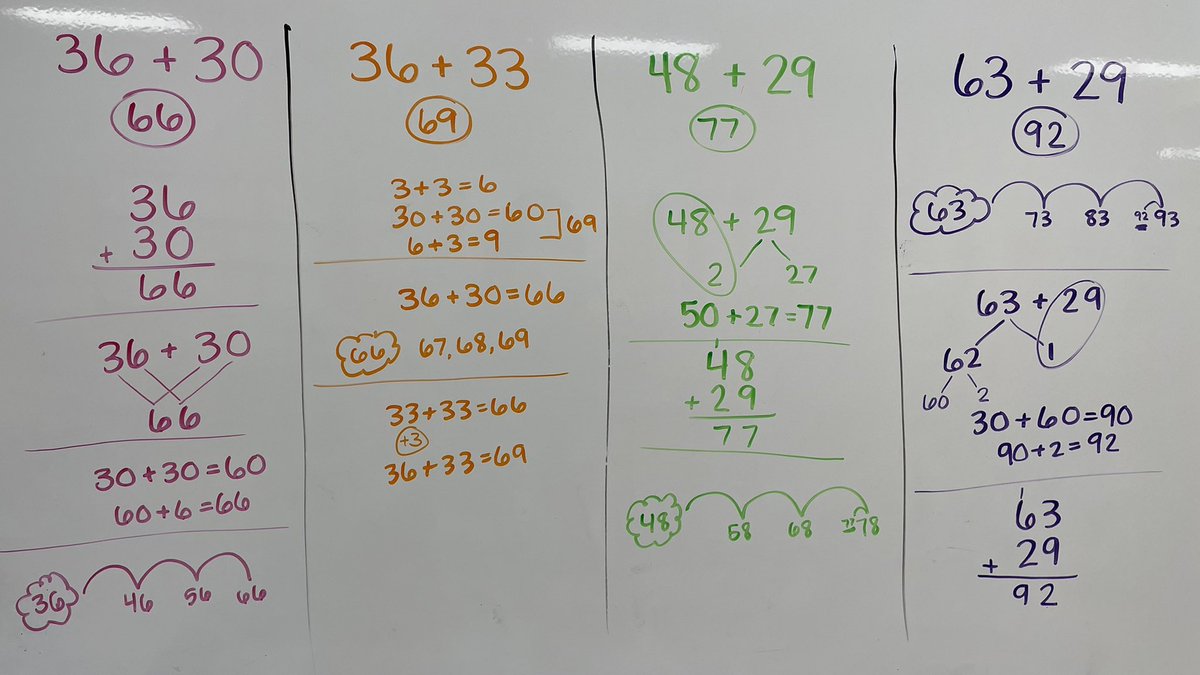 36 + 30
66
36
+ 30
66
36 + 30
66
30 + 30 = 60
60 + 6 = 66
36 46 56 66
36 + 33
69
3 + 3 = 6
30 + 30 = 60 ] 69
6 + 3 = 9
36 + 30 = 66
66 67, 68, 69
33 + 33 = 66
+3
36 + 33 = 69
48 + 29
77
48 + 29
2 27
50 + 27 = 77
1
48
+ 29
77
48 58 68 77 78
63 + 29
92
63 73 83 92 93
63 + 29
62 1
60 2
30 + 60 = 90
90 + 2 = 92
1
63
+ 29
92